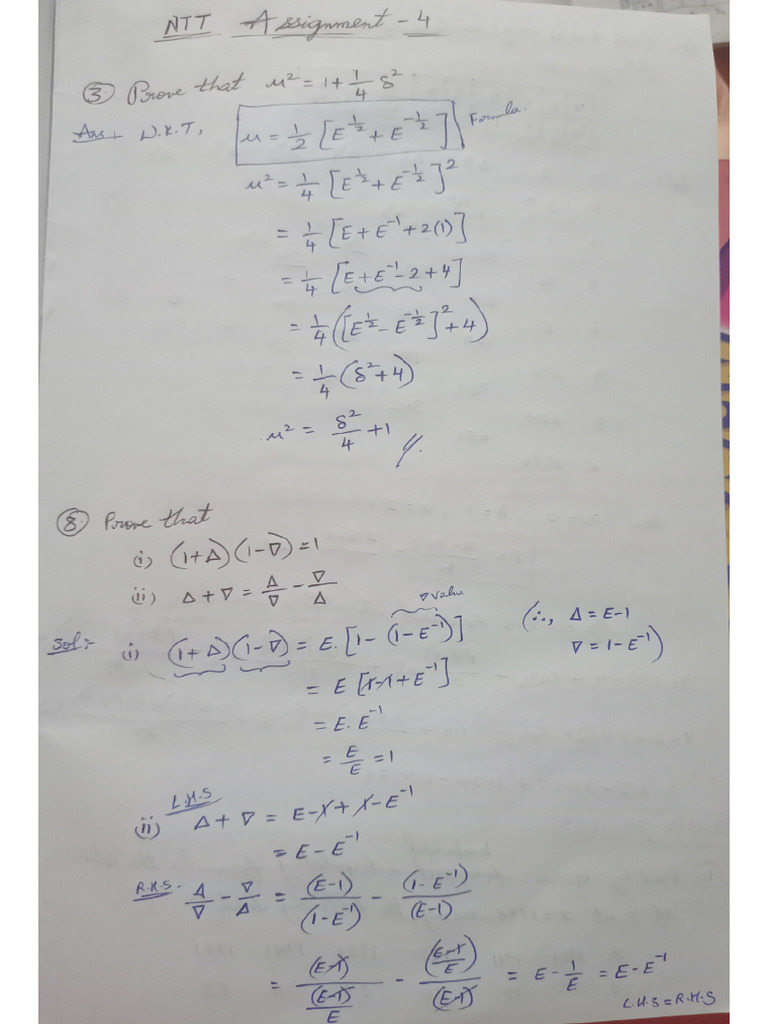 NTT Assignment - 4
③ Prove that μ² = 1 + 1/4 δ²
Ans:- W.K.T, μ = 1/2 [E^(1/2) + E^(-1/2)] Formula.
μ² = 1/4 [E^(1/2) + E^(-1/2)]²
= 1/4 [E + E^-1 + 2(1)]
= 1/4 [E + E^-1 - 2 + 4]
= 1/4 ([E^(1/2) - E^(-1/2)]² + 4)
= 1/4 (δ² + 4)
μ² = δ²/4 + 1
⑧ Prove that
i) (1+Δ)(1-∇) = 1
ii) Δ + ∇ = Δ/∇ - ∇/Δ
∇ value
Sol:- i) (1+Δ)(1-∇) = E. [1 - (1 - E^-1)] (∴, Δ = E-1
∇ = 1 - E^-1)
= E [1 - 1 + E^-1]
= E. E^-1
= E/E = 1
L.H.S
ii) Δ + ∇ = E - 1 + 1 - E^-1
= E - E^-1
R.H.S - Δ/∇ - ∇/Δ = (E-1)/(1-E^-1) - (1-E^-1)/(E-1)
= (E-1)/((E-1)/E) - ((E-1)/E)/(E-1) = E - 1/E = E - E^-1
L.H.S = R.H.S